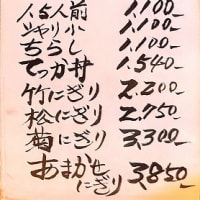 1.5人前 1,100-
シャリ小 1,100-
ちらし 1,100-
てっか村 1,540-
竹にぎり 2,200-
松にぎり 2,750-
菊にぎり 3,300-
おまかせにぎり 3,850-